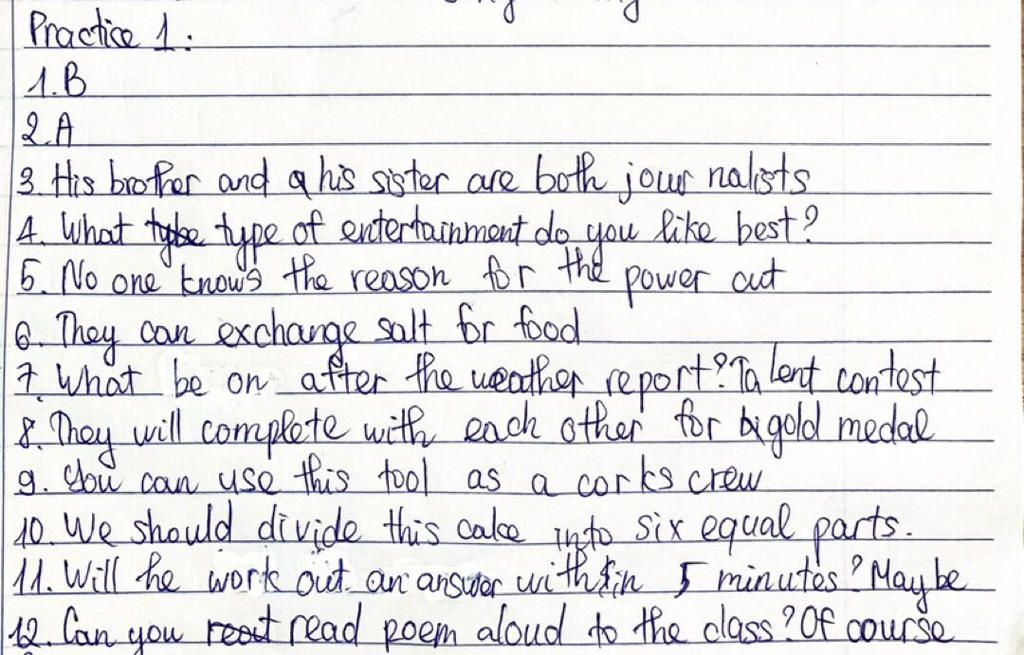 Practice 1:
1. B
2. A
3. His brother and his sister are both journalists
4. What type of entertainment do you like best?
5. No one knows the reason for the power cut
6. They can exchange salt for food
7. What be on after the weather report? Talent contest
8. They will complete with each other for gold medal
9. You can use this tool as a corkscrew
10. We should divide this cake into six equal parts.
11. Will he work out an answer within 5 minutes? Maybe
12. Can you read poem aloud to the class? Of course